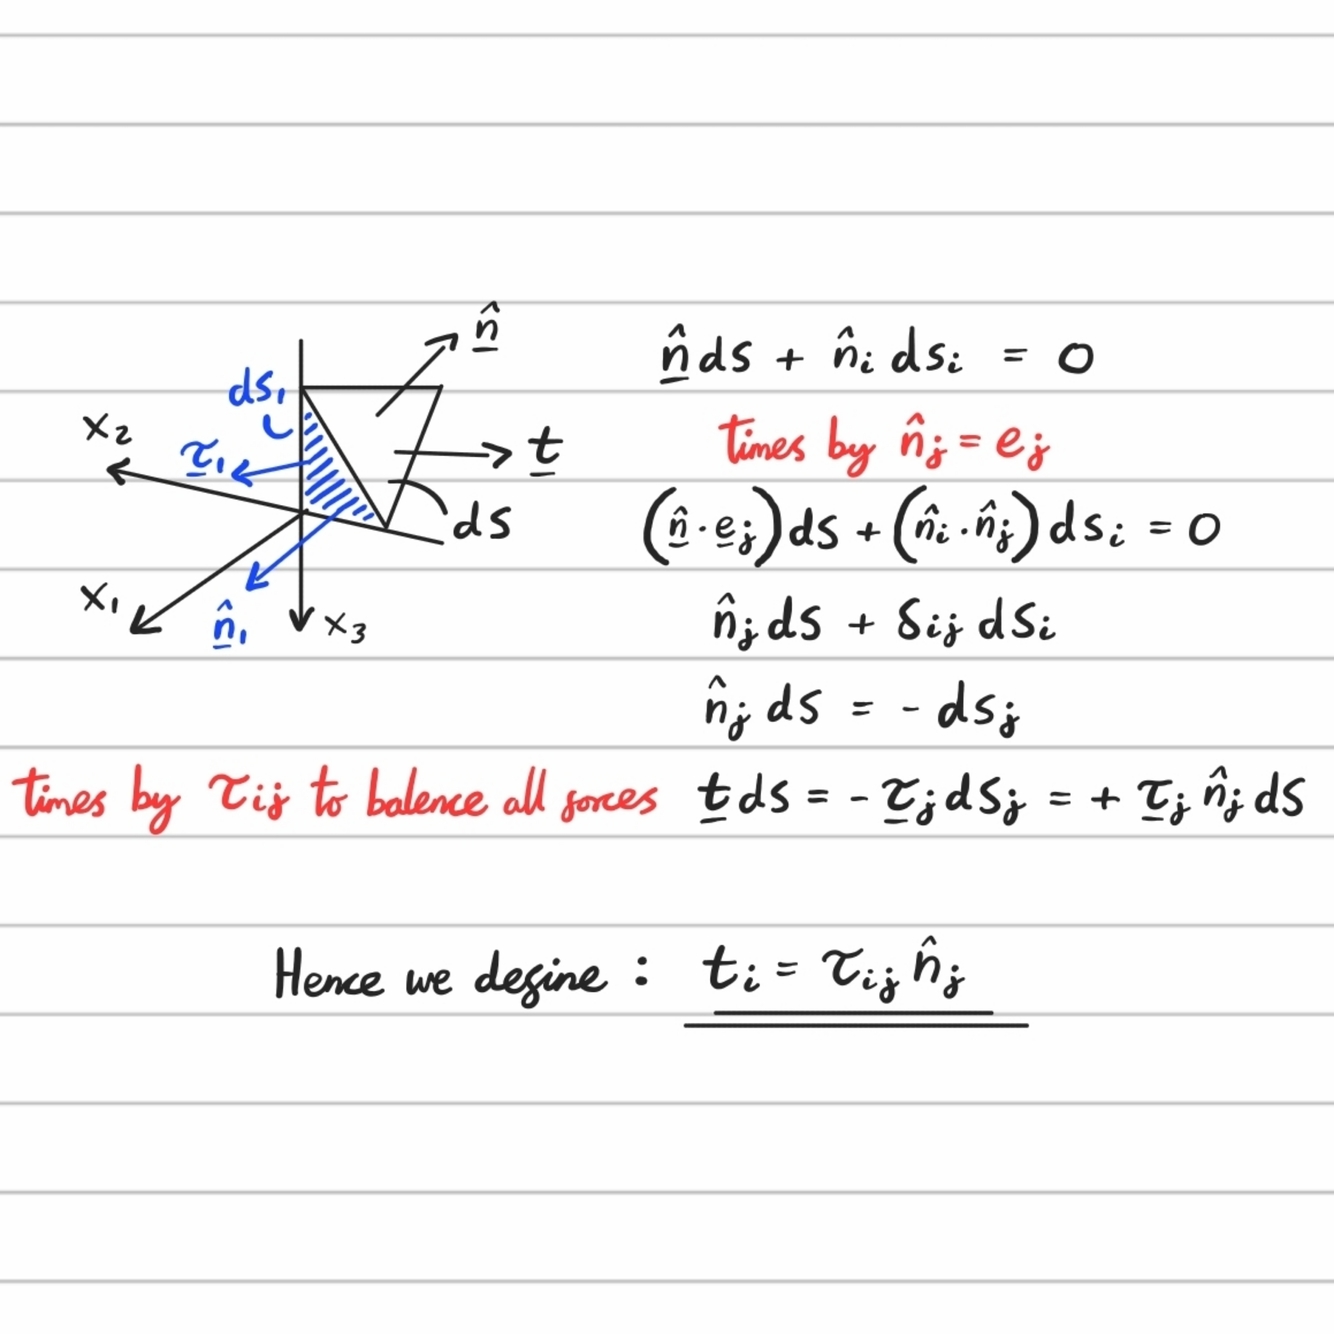 n̂
ds₁
x₂
τ₁
t
ds
x₁
n̂₁
x₃
n̂ ds + n̂ᵢ dsᵢ = 0
times by n̂ⱼ = eⱼ
(n̂ · eⱼ) ds + (n̂ᵢ · n̂ⱼ) dsᵢ = 0
n̂ⱼ ds + δᵢⱼ dsᵢ
n̂ⱼ ds = - dsⱼ
times by τᵢⱼ to balence all forces t ds = - τⱼ dsⱼ = + τⱼ n̂ⱼ ds
Hence we define : tᵢ = τᵢⱼ n̂ⱼ